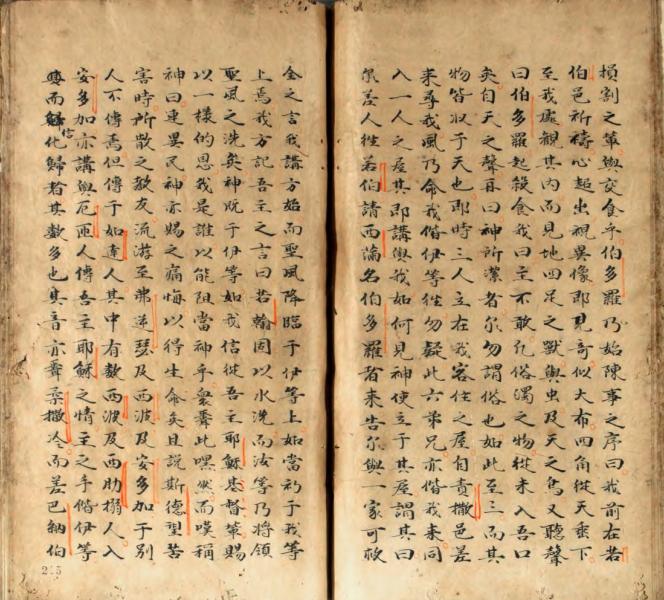 損割之輩與交食乎伯多羅乃始陳事之序曰我前在若
伯邑祈禱心超出視異像即見奇似大布四角從天垂下
至我處觀其內而見地四足之獸與虫及天之鳥又聽聲
曰伯多羅起殺食我曰主不敢凡俗濁之物從未入吾口
矣自天之聲耳曰神所潔者尔勿謂俗也如此至三而其
物皆収于天也即時三人立在我客住之屋自責撒邑差
来尋我風乃命我偕伊等徃勿疑此六弟兄亦偕我来同
入一人之屋其即講與我如何見神使立于其屋謂其曰
差人徃若伯請西滿名伯多羅者来告尔與一家可救
全之言我講方始而聖風降臨于伊等上如當初于我等
上焉我方記吾主之言曰若翰固以水洗而汝等乃將領
聖風之洗矣神既于伊等如我信從吾主耶穌基督輩賜
以一樣的恩我是誰以能阻當神乎衆聞此嘿然而嘆稱
神曰連異民神亦賜之痛悔以得生命矣且說斯德望苦
害時所散之教友流游至弗逆瑟及西波及安多加于別
人不傳焉但傳于如達人其中有数西波及西肋搦人入
安多加亦講與厄人傳吾主耶穌之情主之手偕伊等
而信化歸者其數多也其音亦聞柔撒冷而差巴納伯